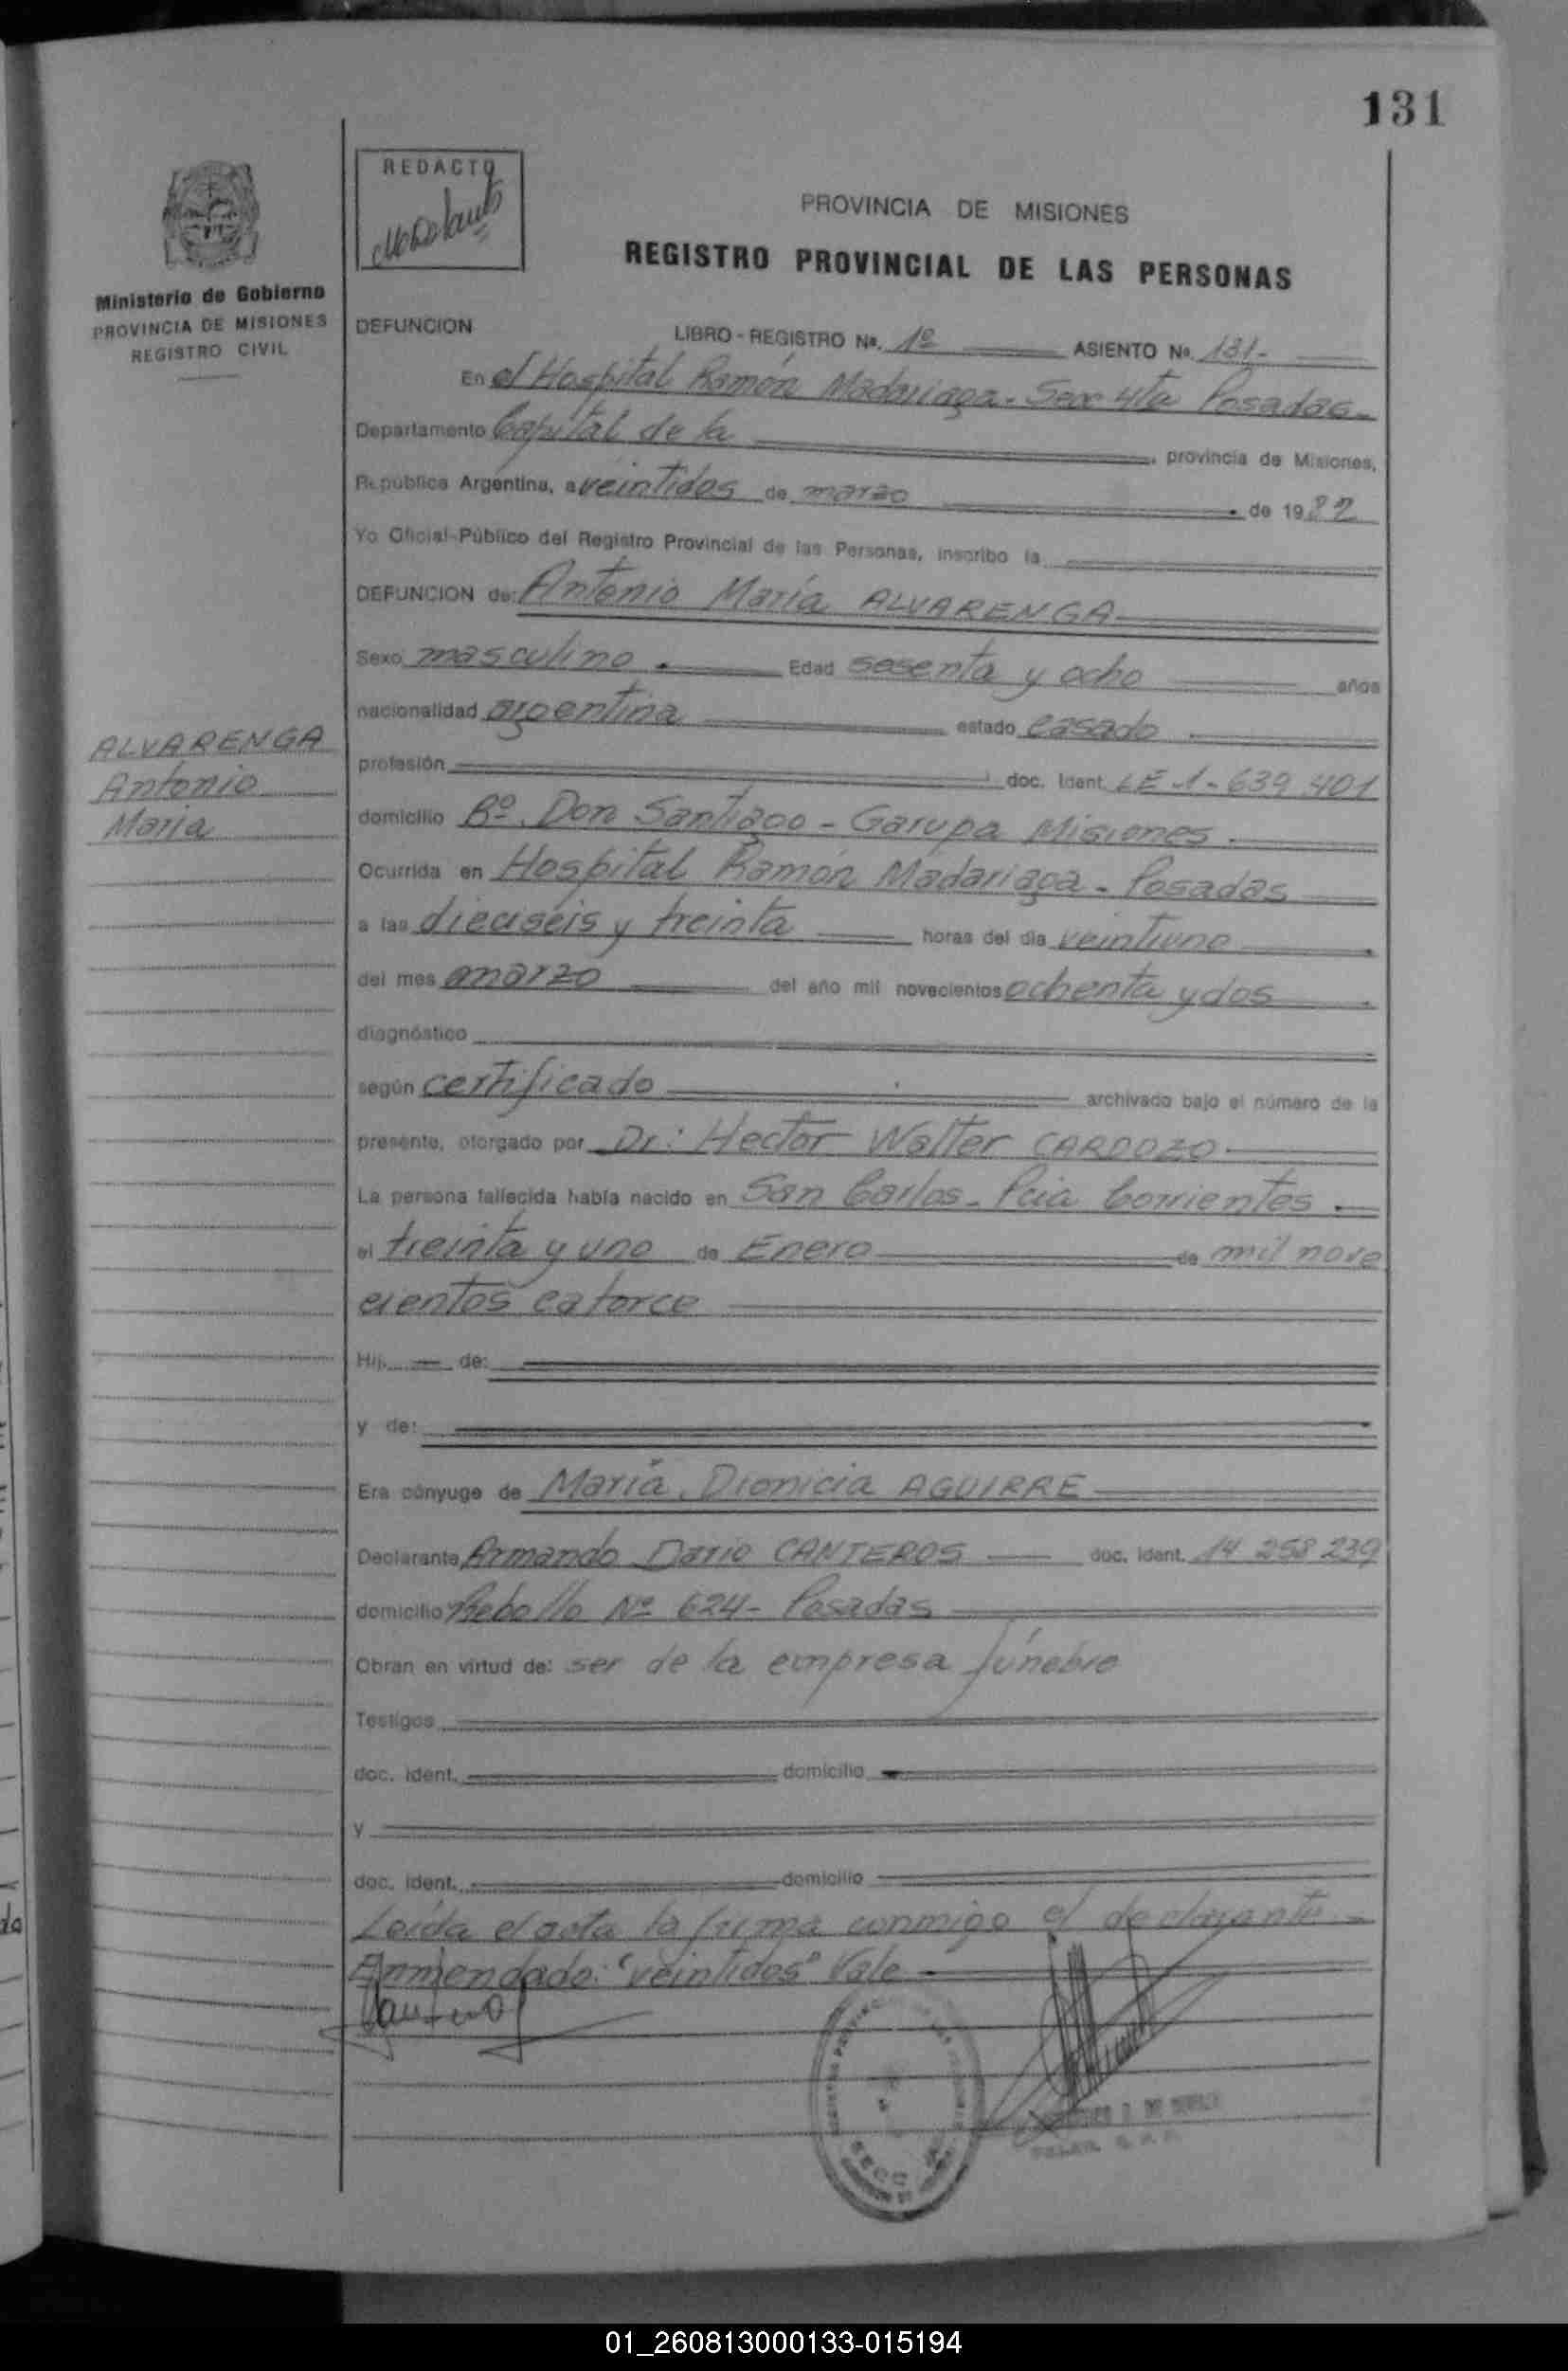 131
REDACTO
PROVINCIA DE MISIONES
REGISTRO PROVINCIAL DE LAS PERSONAS
Ministerio de Gobierno
PROVINCIA DE MISIONES
REGISTRO CIVIL
DEFUNCION LIBRO - REGISTRO Nº. 1º ASIENTO Nº. 131-
En el Hospital Ramón Madariaga. Secc 4ta Posadas-
Departamento Capital de la provincia de Misiones,
República Argentina, a veintidos de marzo de 1982
Yo Oficial-Público del Registro Provincial de las Personas, inscribo la
DEFUNCION de: Antonio María ALVARENGA
Sexo masculino Edad sesenta y ocho años
nacionalidad argentina estado casado
ALVARENGA
Antonio
María
profesión doc. Ident. LE 1-639.401
domicilio Bº. Don Santiago - Garupa Misiones.
Ocurrida en Hospital Ramón Madariaga - Posadas
a las dieciséis y treinta horas del día veintiuno
del mes marzo del año mil novecientos ochenta y dos
diagnóstico
según certificado archivado bajo el número de la
presente, otorgado por Dr: Hector Walter CARDOZO
La persona fallecida había nacido en San Carlos - Pcia Corrientes.
el treinta y uno de Enero de mil nove
cientos catorce
Hij de:
y de:
Era cónyuge de María Dionicia AGUIRRE
Declarante Armando Dario CANTEROS doc. ident. 14 258 239
domicilio Rebollo Nº 624- Posadas
Obran en virtud de: ser de la empresa fúnebre
Testigos
doc. ident. domicilio
y
doc. ident. domicilio
Leída el acta la firma conmigo el declarante-
Enmendado: "veintidos" Vale
01_260813000133-015194